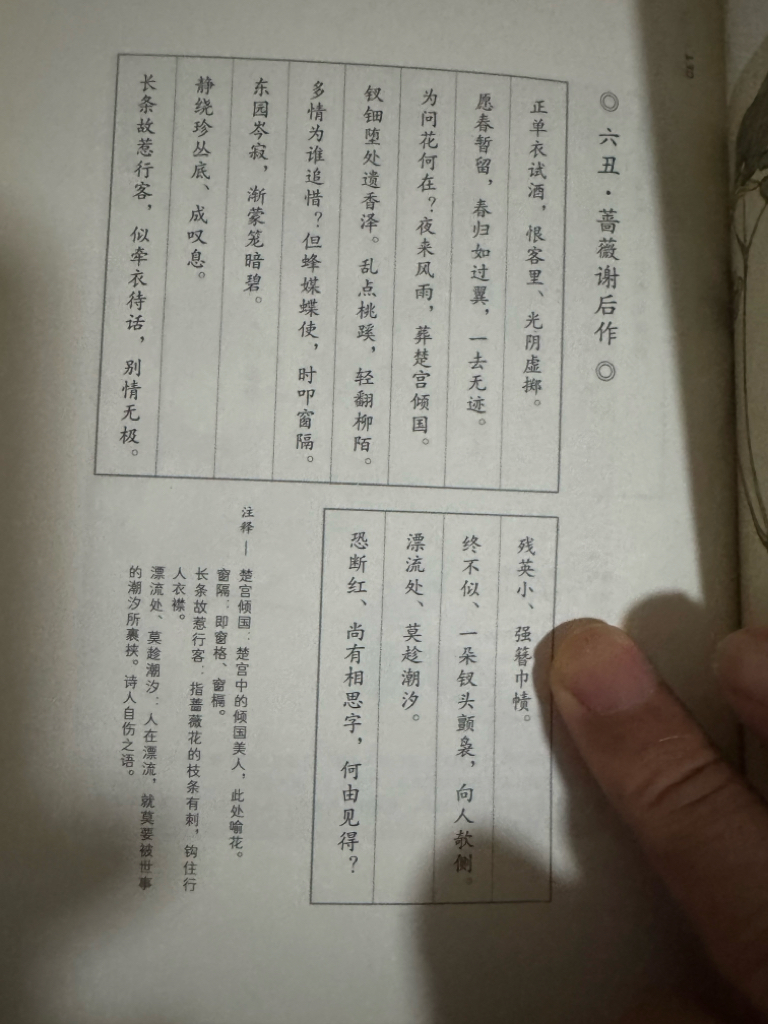 ◎ 六丑·蔷薇谢后作 ◎
正单衣试酒，恨客里、光阴虚掷。
愿春暂留，春归如过翼，一去无迹。
为问花何在？夜来风雨，葬楚宫倾国。
钗钿堕处遗香泽。乱点桃蹊，轻翻柳陌。
多情为谁追惜？但蜂媒蝶使，时叩窗隔。
东园岑寂，渐蒙笼暗碧。
静绕珍丛底、成叹息。
长条故惹行客，似牵衣待话，别情无极。
残英小、强簪巾帻。
终不似、一朵钗头颤袅，向人欹侧。
漂流处、莫趁潮汐。
恐断红、尚有相思字，何由见得？
注释—
楚宫倾国：楚宫中的倾国美人，此处喻花。
窗隔：即窗格、窗槅。
长条故惹行客：指蔷薇花的枝条有刺，钩住行
人衣襟。
漂流处、莫趁潮汐：人在漂流，就莫要被世事
的潮汐所裹挟。诗人自伤之语。